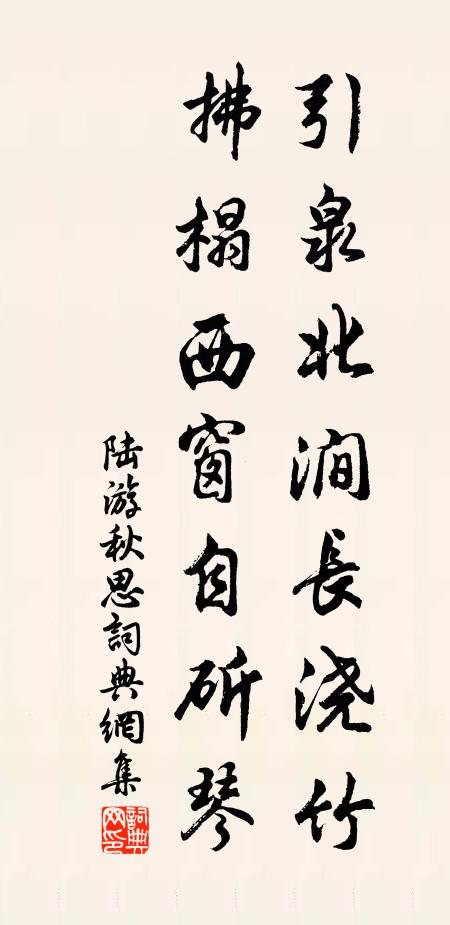 引泉北澗長浇竹
拂榻西窗自斫琴
陆游秋思詞典網集
詞典
网印